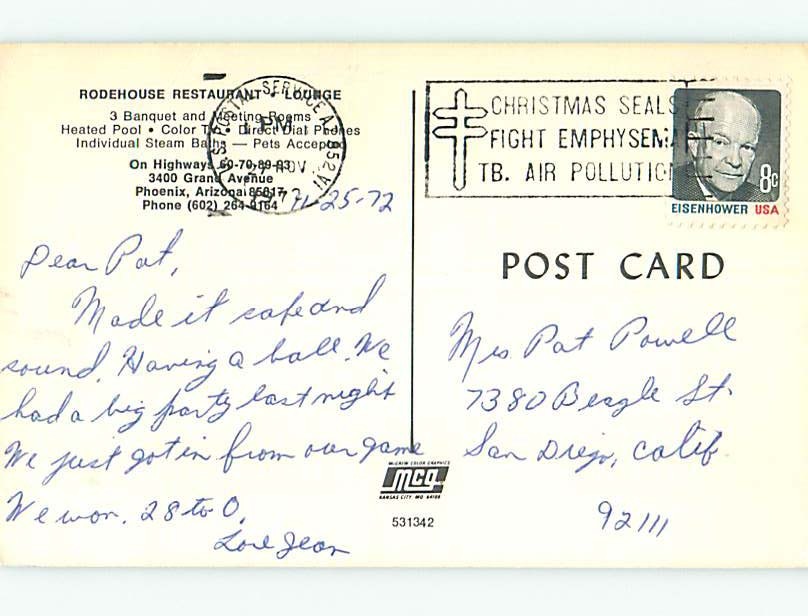 RODEHOUSE RESTAURANT • LOUNGE
3 Banquet and Meeting Rooms
Heated Pool • Color TV • Direct Dial Phones
Individual Steam Baths — Pets Accepted
On Highways 60-70-89-93
3400 Grand Avenue
Phoenix, Arizona 85017
Phone (602) 264-9164
POSTAL SERVICE A 852
PM
NOV
CHRISTMAS SEALS
FIGHT EMPHYSEMA
TB. AIR POLLUTION
8c
EISENHOWER USA
11-25-72
Dear Pat,
Made it safe and
sound. Having a ball. We
had a big party last night
We just got in from our game
We won. 28 to 0.
Love Jean
POST CARD
Mrs Pat Powell
7380 Beagle St.
San Diego, Calif.
92111
McGREW COLOR GRAPHICS
MCG
KANSAS CITY, MO 64108
531342